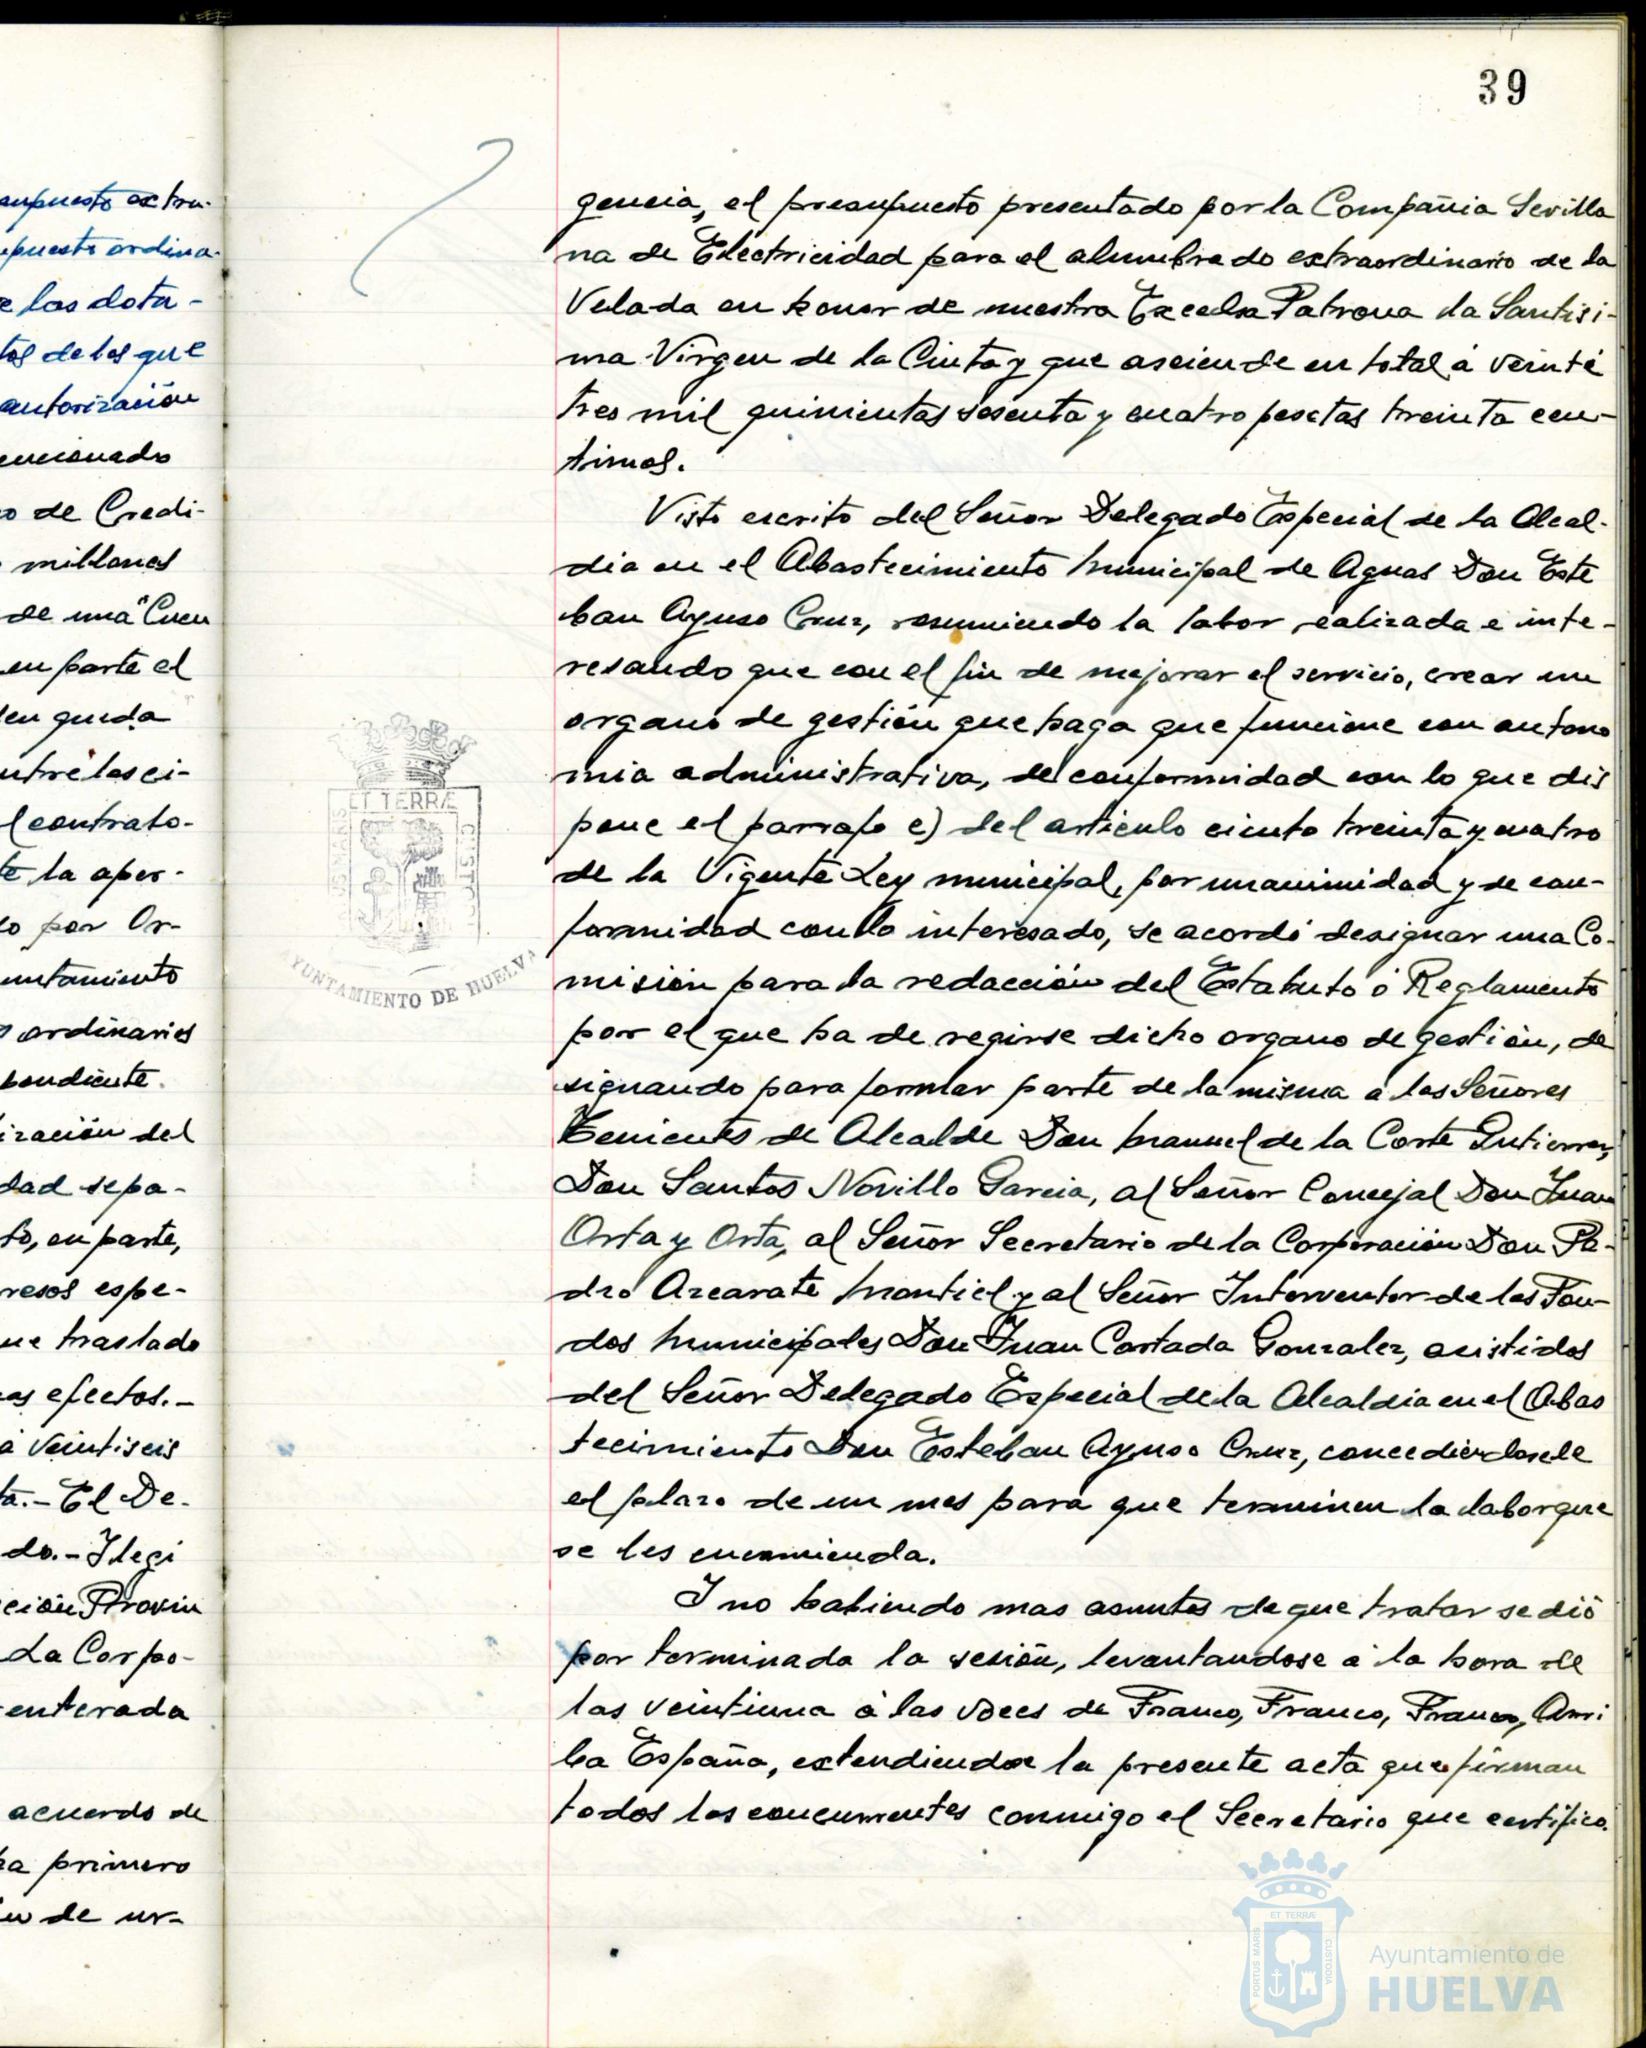 39
supuesto extra-
upuesto ordina-
e las dota-
tos de los que
autorización
encionado
o de Credi-
millones
de una "Cuen
en parte el
den queda
ntre los ci-
l contrato-
te la aper-
o por Or-
untamiento
ordinarios
pondiente.
ización del
dad sepa-
to, en parte,
resos espe-
ue traslado
as efectos.-
a veintiseis
ta.- El De-
do.- Ilegi
ción Provin
La Corpo-
enterada
acuerdo de
ra primero
de ur-
gencia, el presupuesto presentado por la Compañia Sevilla
na de Electricidad para el alumbrado extraordinario de la
Velada en honor de nuestra Excelsa Patrona la Santisi-
ma Virgen de la Cinta y que asciende en total á veinte
tres mil quinientas sesenta y cuatro pesetas treinta cen-
timos.
Visto escrito del Señor Delegado Especial de la Alcal-
dia en el Abastecimiento Municipal de Aguas Don Este
ban Ayuso Cruz, resumiendo la labor realizada e inte-
resando que con el fin de mejorar el servicio, crear un
organo de gestión que haga que funcione con autono
mia administrativa, de conformidad con lo que dis
pone el parrafo c) del articulo ciento treinta y cuatro
de la Vigente Ley municipal, por unanimidad y de con-
formidad con lo interesado, se acordó designar una Co-
misión para la redacción del Estatuto ó Reglamento
por el que ha de regirse dicho organo de gestión, de
signando para formar parte de la misma a los Señores
Tenientes de Alcalde Don Manuel de la Corte Gutierrez,
Don Santos Novillo Garcia, al Señor Concejal Don Juan
Orta y Orta, al Señor Secretario de la Corporación Don Pe-
dro Azcarate Montiel y al Señor Interventor de los Fon-
dos Municipales Don Juan Cortada Gonzalez, asistidos
del Señor Delegado Especial de la Alcaldia en el Abas
tecimiento Don Esteban Ayuso Cruz, concediendosele
el plazo de un mes para que terminen la labor que
se les encomienda.
I no habiendo mas asuntos de que tratar se dió
por terminada la sesión, levantandose a la hora de
las veintiuna á las voces de Franco, Franco, Franco, Arri
ba España, extendiendose la presente acta que firman
todos los concurrentes conmigo el Secretario que certifico.
ET TERRÆ
AYUNTAMIENTO DE HUELVA
PORTUS MARIS
ET TERRÆ
CUSTODIA
Ayuntamiento de
HUELVA